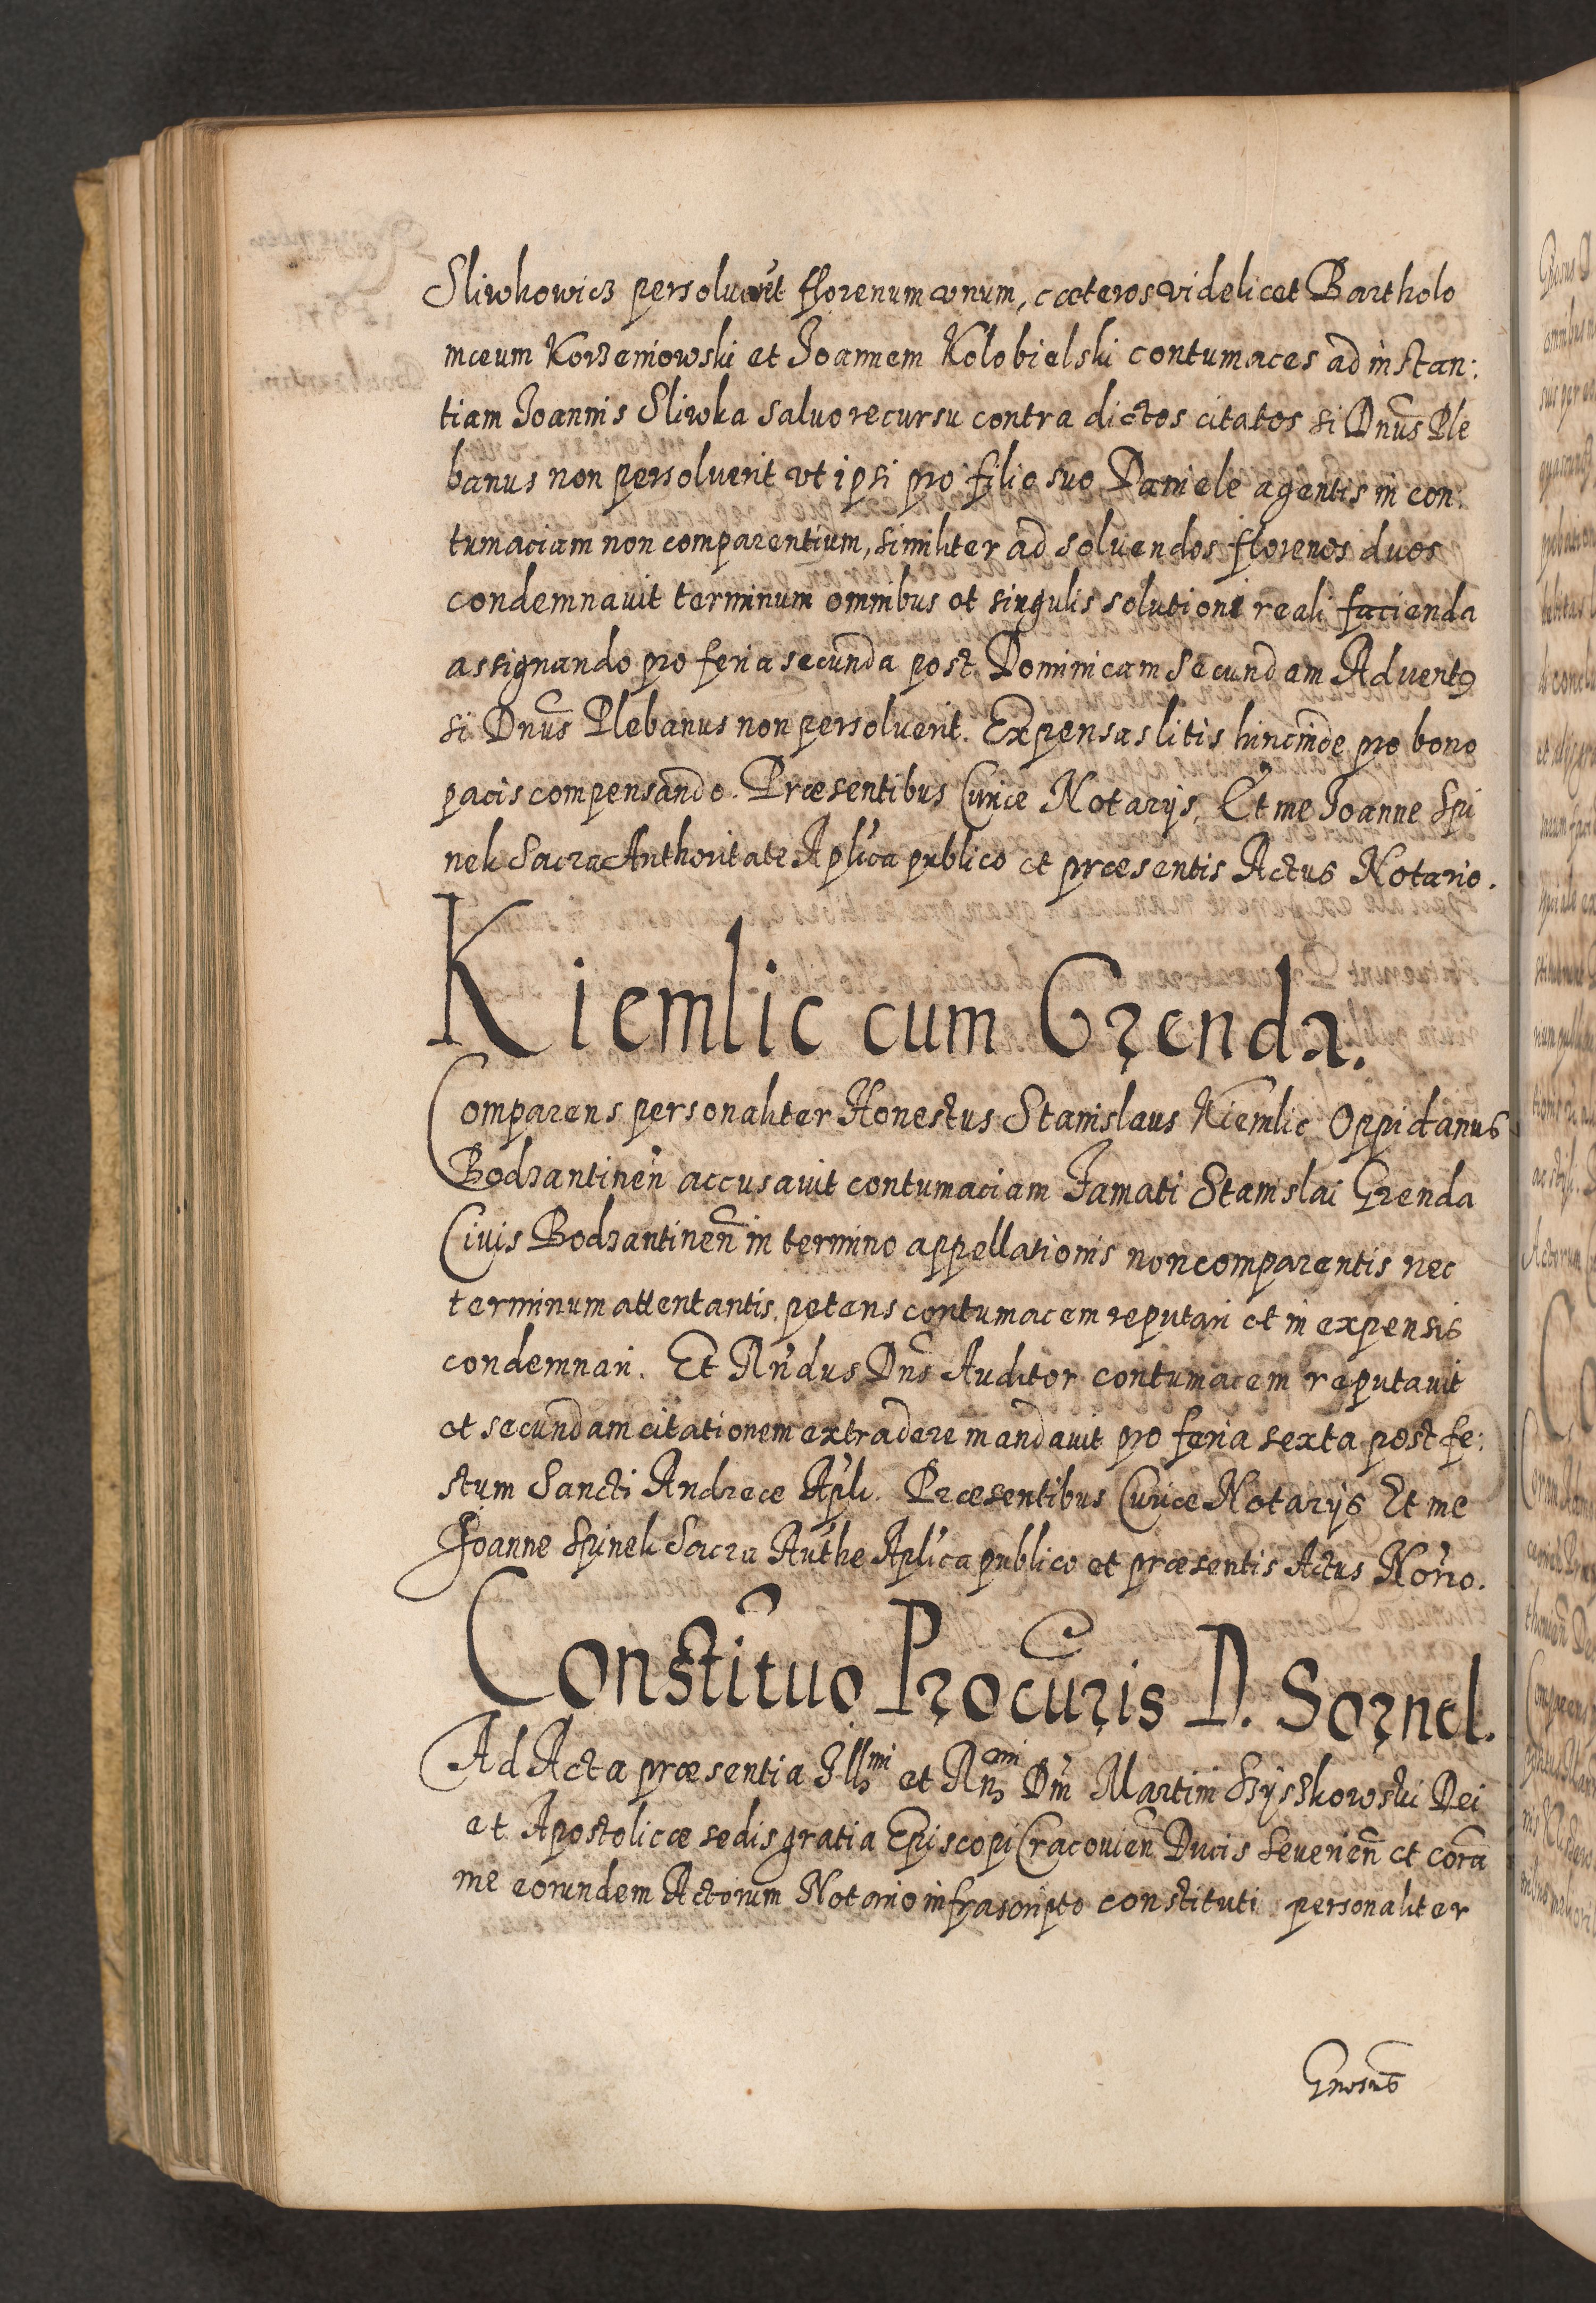 Sliwkowicz persoluerit florenum vnum, cæteros videlicet Bartholo
mæum Korzeniowski et Joannem Kolobielski contumaces ad instan:
tiam Joannis Sliwka saluo recursu contra dictos citatos si Dnus Ple
banus non persoluerit vt ipsi pro filio suo Daniele agentis in con:
tumaciam non comparentium, similiter ad soluendos florenos duos
condemnauit terminum omnibus et singulis solutioni reali facienda
assignando pro feria secunda post Dominicam secundam Aduentus
si Dnus Plebanus non persoluerit. Expensas litis hincinde pro bono
pacis compensando. Præsentibus Curiæ Notarijs. Et me Joanne Spi
nek Sacra Authoritate Aplica publico et præsentis Actus Notario.
Kiemlic cum Grenda.
Comparens personaliter Honestus Stanislaus Kiemlic Oppidanus
Bodzantinen accusauit contumaciam Famati Stanislai Grenda
Ciuis Bodzantinen in termino appellationis non comparentis nec
terminum attentantis. petens contumacem reputari et in expensis
condemnari. Et Rndus Dns Auditor contumacem reputauit
et secundam citationem extradere mandauit pro feria sexta post fe:
stum Sancti Andreæ Apli. Præsentibus Curiæ Notarijs Et me
Joanne Spinek Sacra Authe Aplica publico et præsentis Actus Norio.
Constituo Procuris D. Sornol.
Ad Acta præsentia Illmi et Rndmi Dni Martini Szyszkowski Dei
et Apostolicæ sedis gratia Episcopi Cracouien Ducis Seuerien et cora
me eorundem Actorum Notario infrascripto constituti personaliter
Gnosus